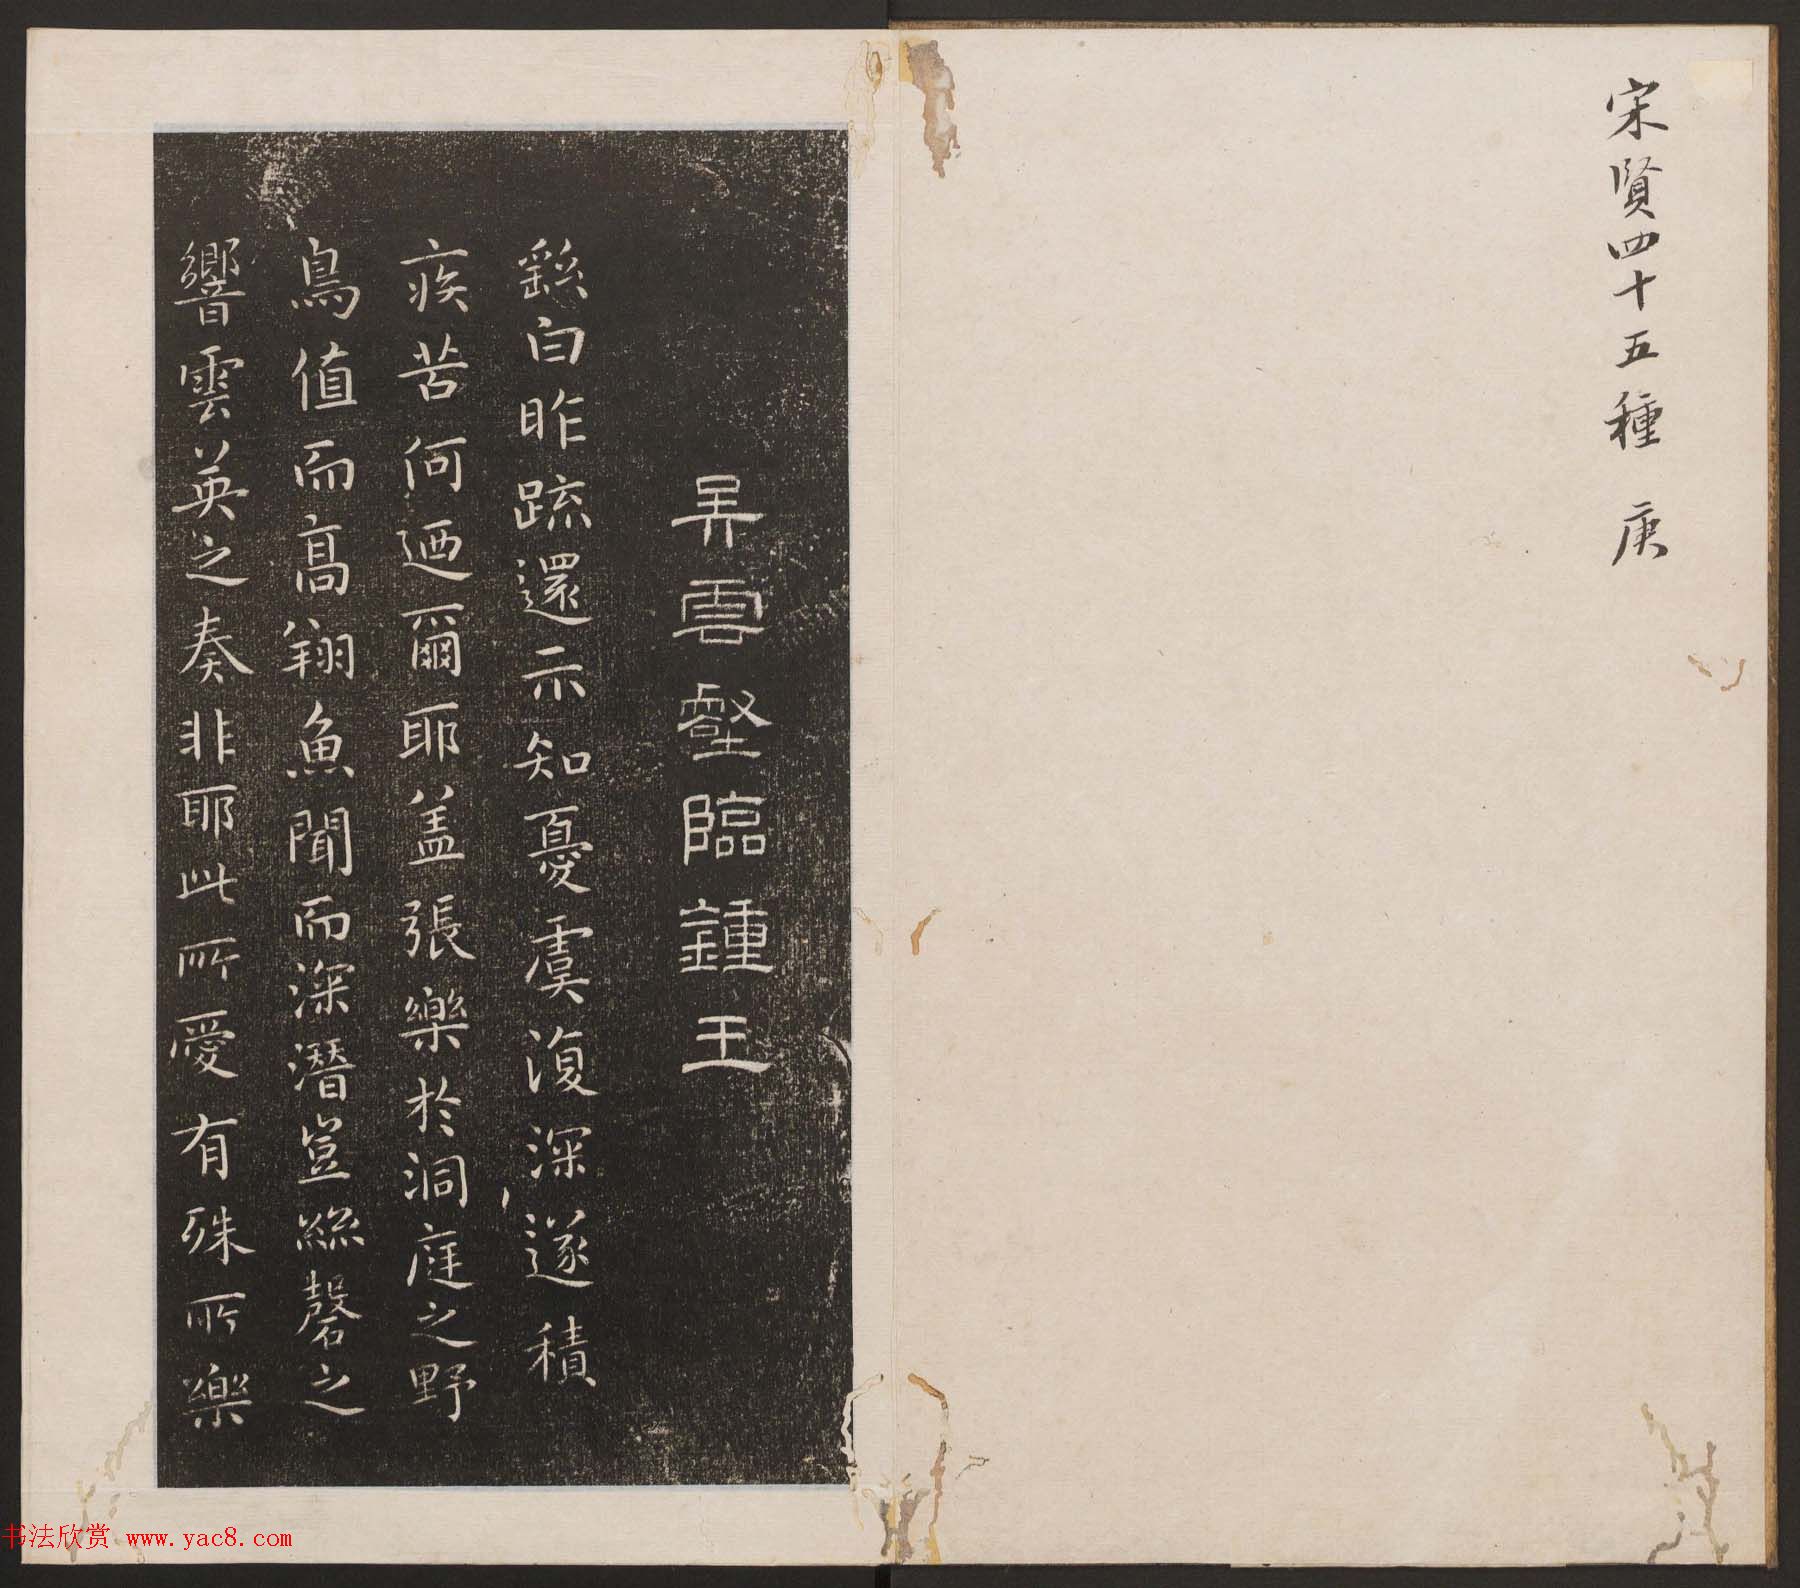 宋賢四十五種 庚
吴雲壑臨鍾王
繇白昨疏還示知憂虞復深遂積
疾苦何迺爾耶盖張樂於洞庭之野
鳥值而高翔魚聞而深潛豈絲磬之
響雲英之奏非耶此所愛有殊所樂
书法欣赏 www.yac8.com